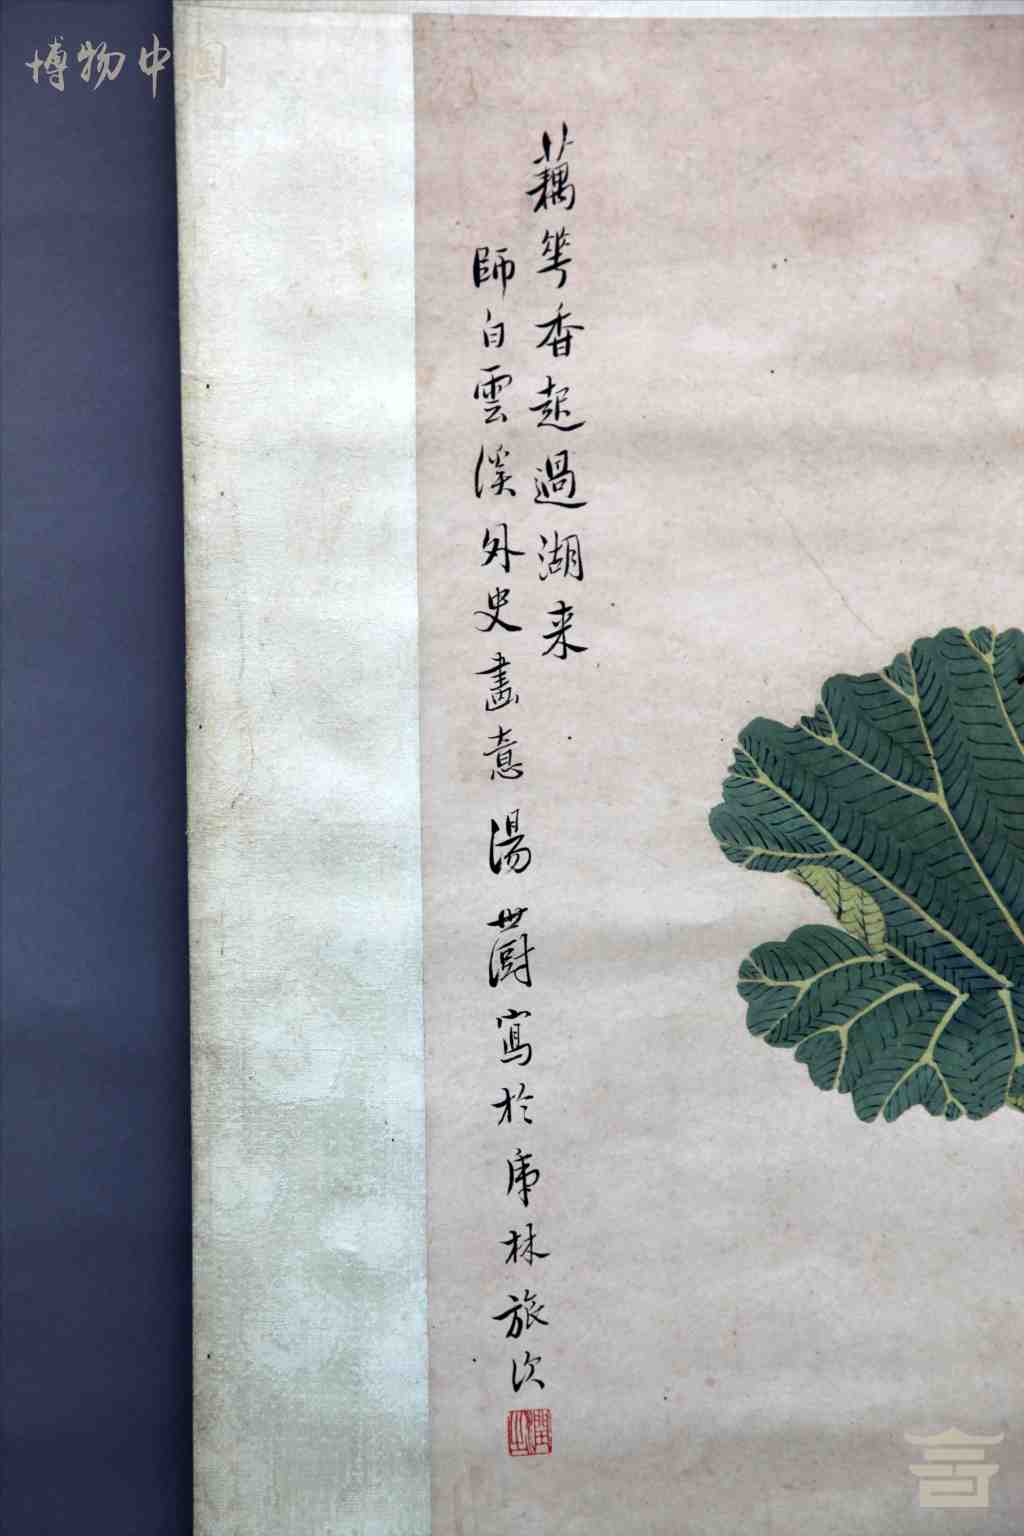 博物中国
藕華香起過湖来
師白雲溪外史畫意湯世澍寫於虎林旅次